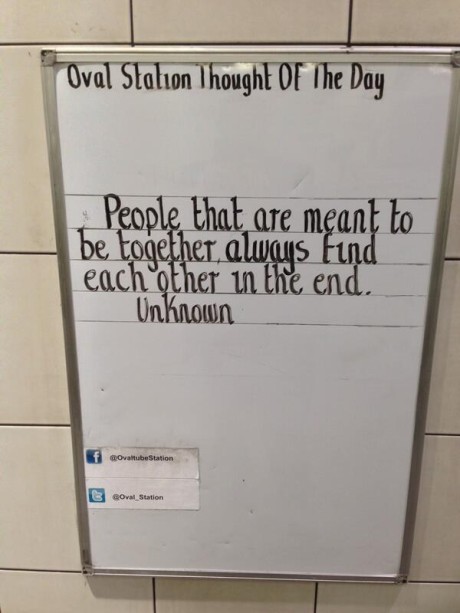 Oval Station Thought Of The Day
People that are meant to
be together always find
each other in the end.
Unknown
@OvaltubeStation
@Oval_Station